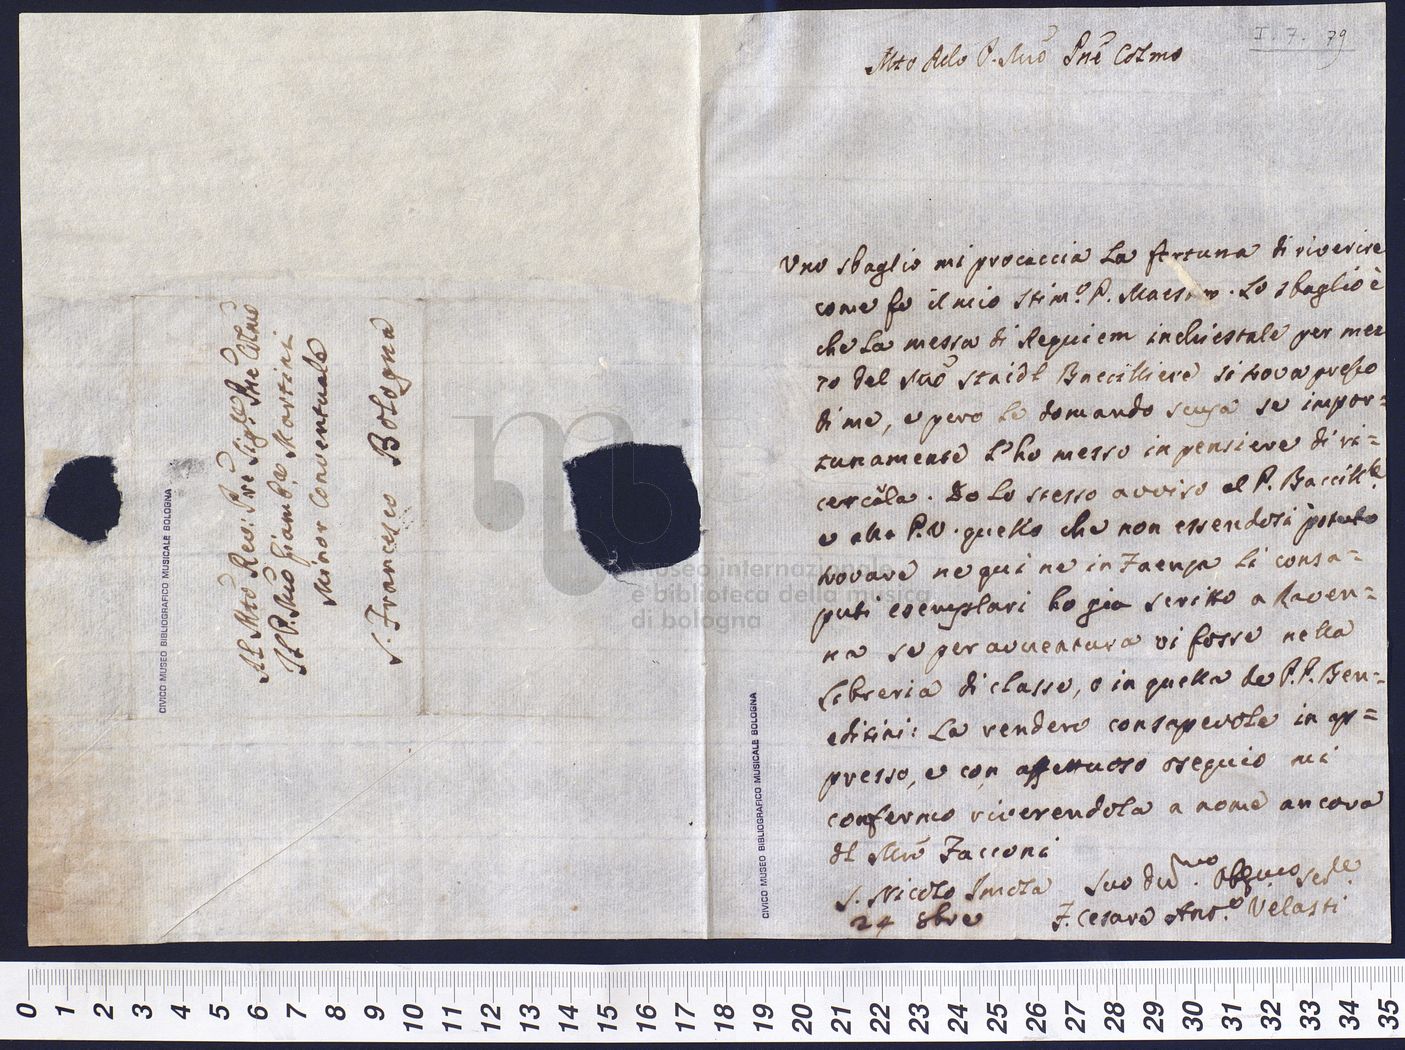 I. 7. 79
Mto Rdo P. Mrõ Pnẽ Colmo
Uno sbaglio mi procaccia La fortuna di riverire
come fo il mio stim.º P. Maestro. Lo sbaglio è
che La messa di Requiem inchiestale per mez
zo del Mrõ Baccilliere si trova presso
di me, e pero le domando scusa se impor=
tunamente L'ho messo in pensiere di ri=
cercarla. Do Lo stesso avviso al P. Baccill.e
e alla P.V. quello che non essendosi potuto
trovare ne qui ne in Faenza Li consa=
puti esemplari ho gia scritto a Raven=
na se per avventura vi fosse nella
Libreria di classe, o in quella de P.P. Ben=
editini: La rendero consapevole in ap=
presso, e con affettuoso ossequio mi
confermo riverendola a nome ancora
del Mrõ Zacconi
S. Nicolo Imola Suo Obb.mo
24 8bre F. Cesare Ant.º Velasti
Al Mtõ Rev: P.rẽ Sig.re Pnẽ Colmo
Il P. Mrõ Giamb.a Martini
Minor Conventuale
S. Francesco Bologna
CIVICO MUSEO BIBLIOGRAFICO MUSICALE BOLOGNA
CIVICO MUSEO BIBLIOGRAFICO MUSICALE BOLOGNA
museo internazionale
e biblioteca della musica
di bologna
0 1 2 3 4 5 6 7 8 9 10 11 12 13 14 15 16 17 18 19 20 21 22 23 24 25 26 27 28 29 30 31 32 33 34 35